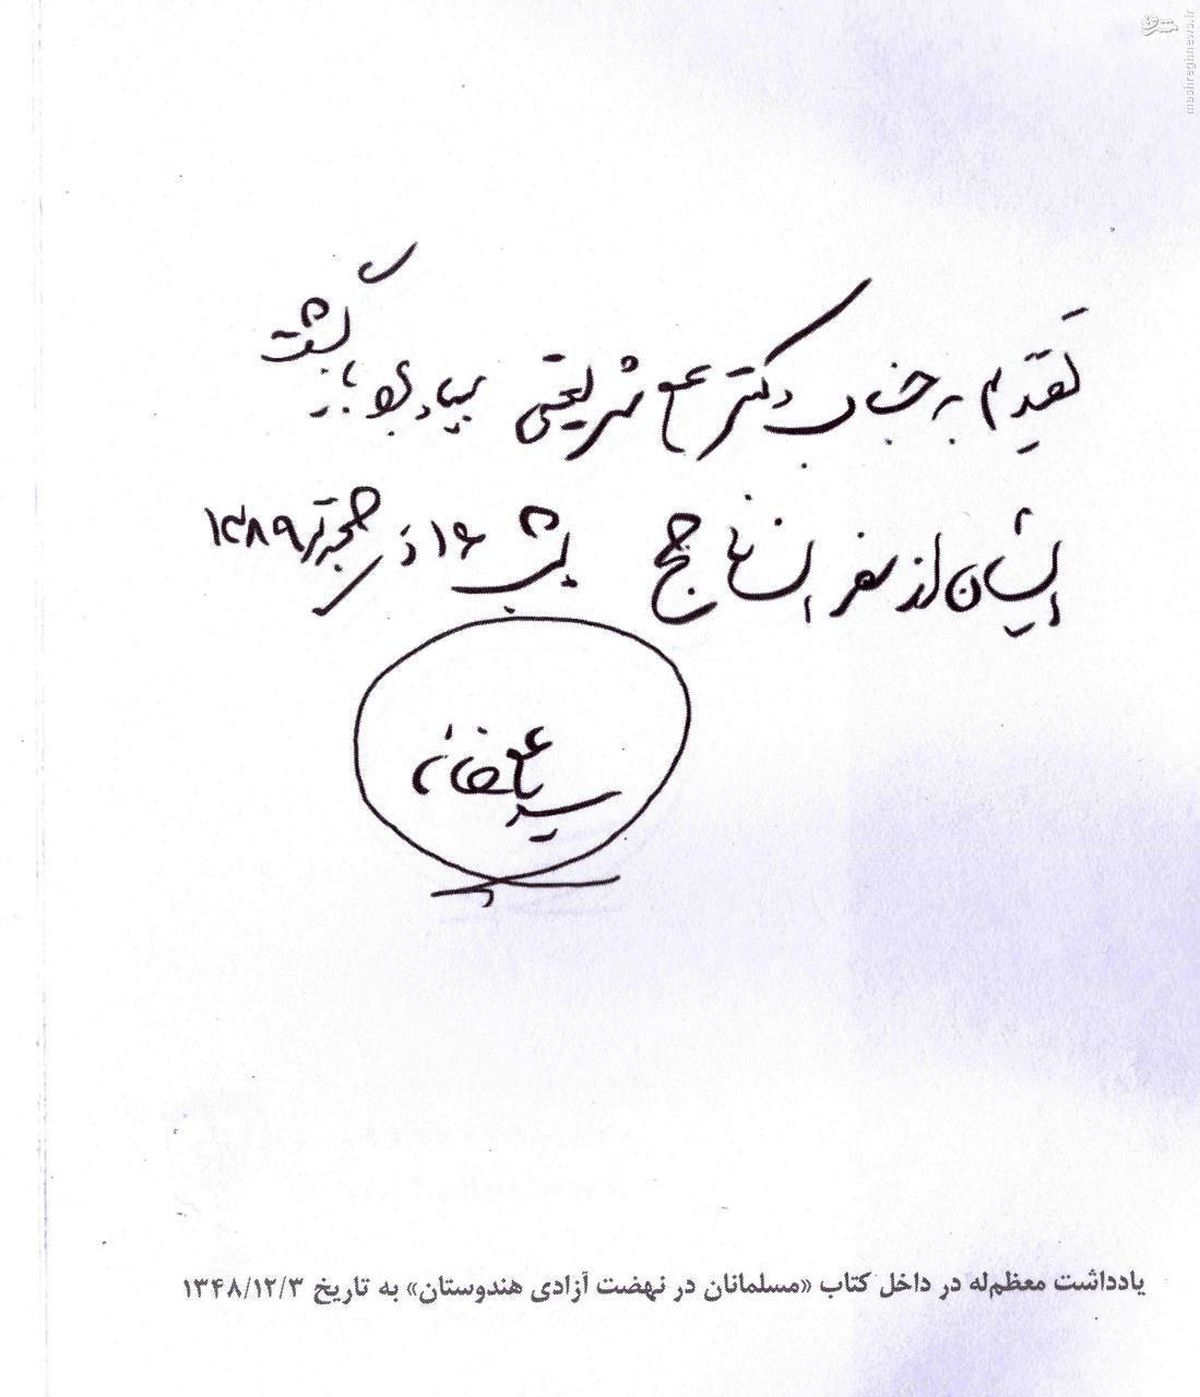 تقدیم به جناب دکتر علی شریعتی بیادبود بازگشت
ایشان از سفر حج شب ۱۶ ذیحجه ۱۳۸۹
سید علی خامنه‌ای
یادداشت معظم‌له در داخل کتاب «مسلمانان در نهضت آزادی هندوستان» به تاریخ ۱۳۴۸/۱۲/۳
mashreghnews.ir